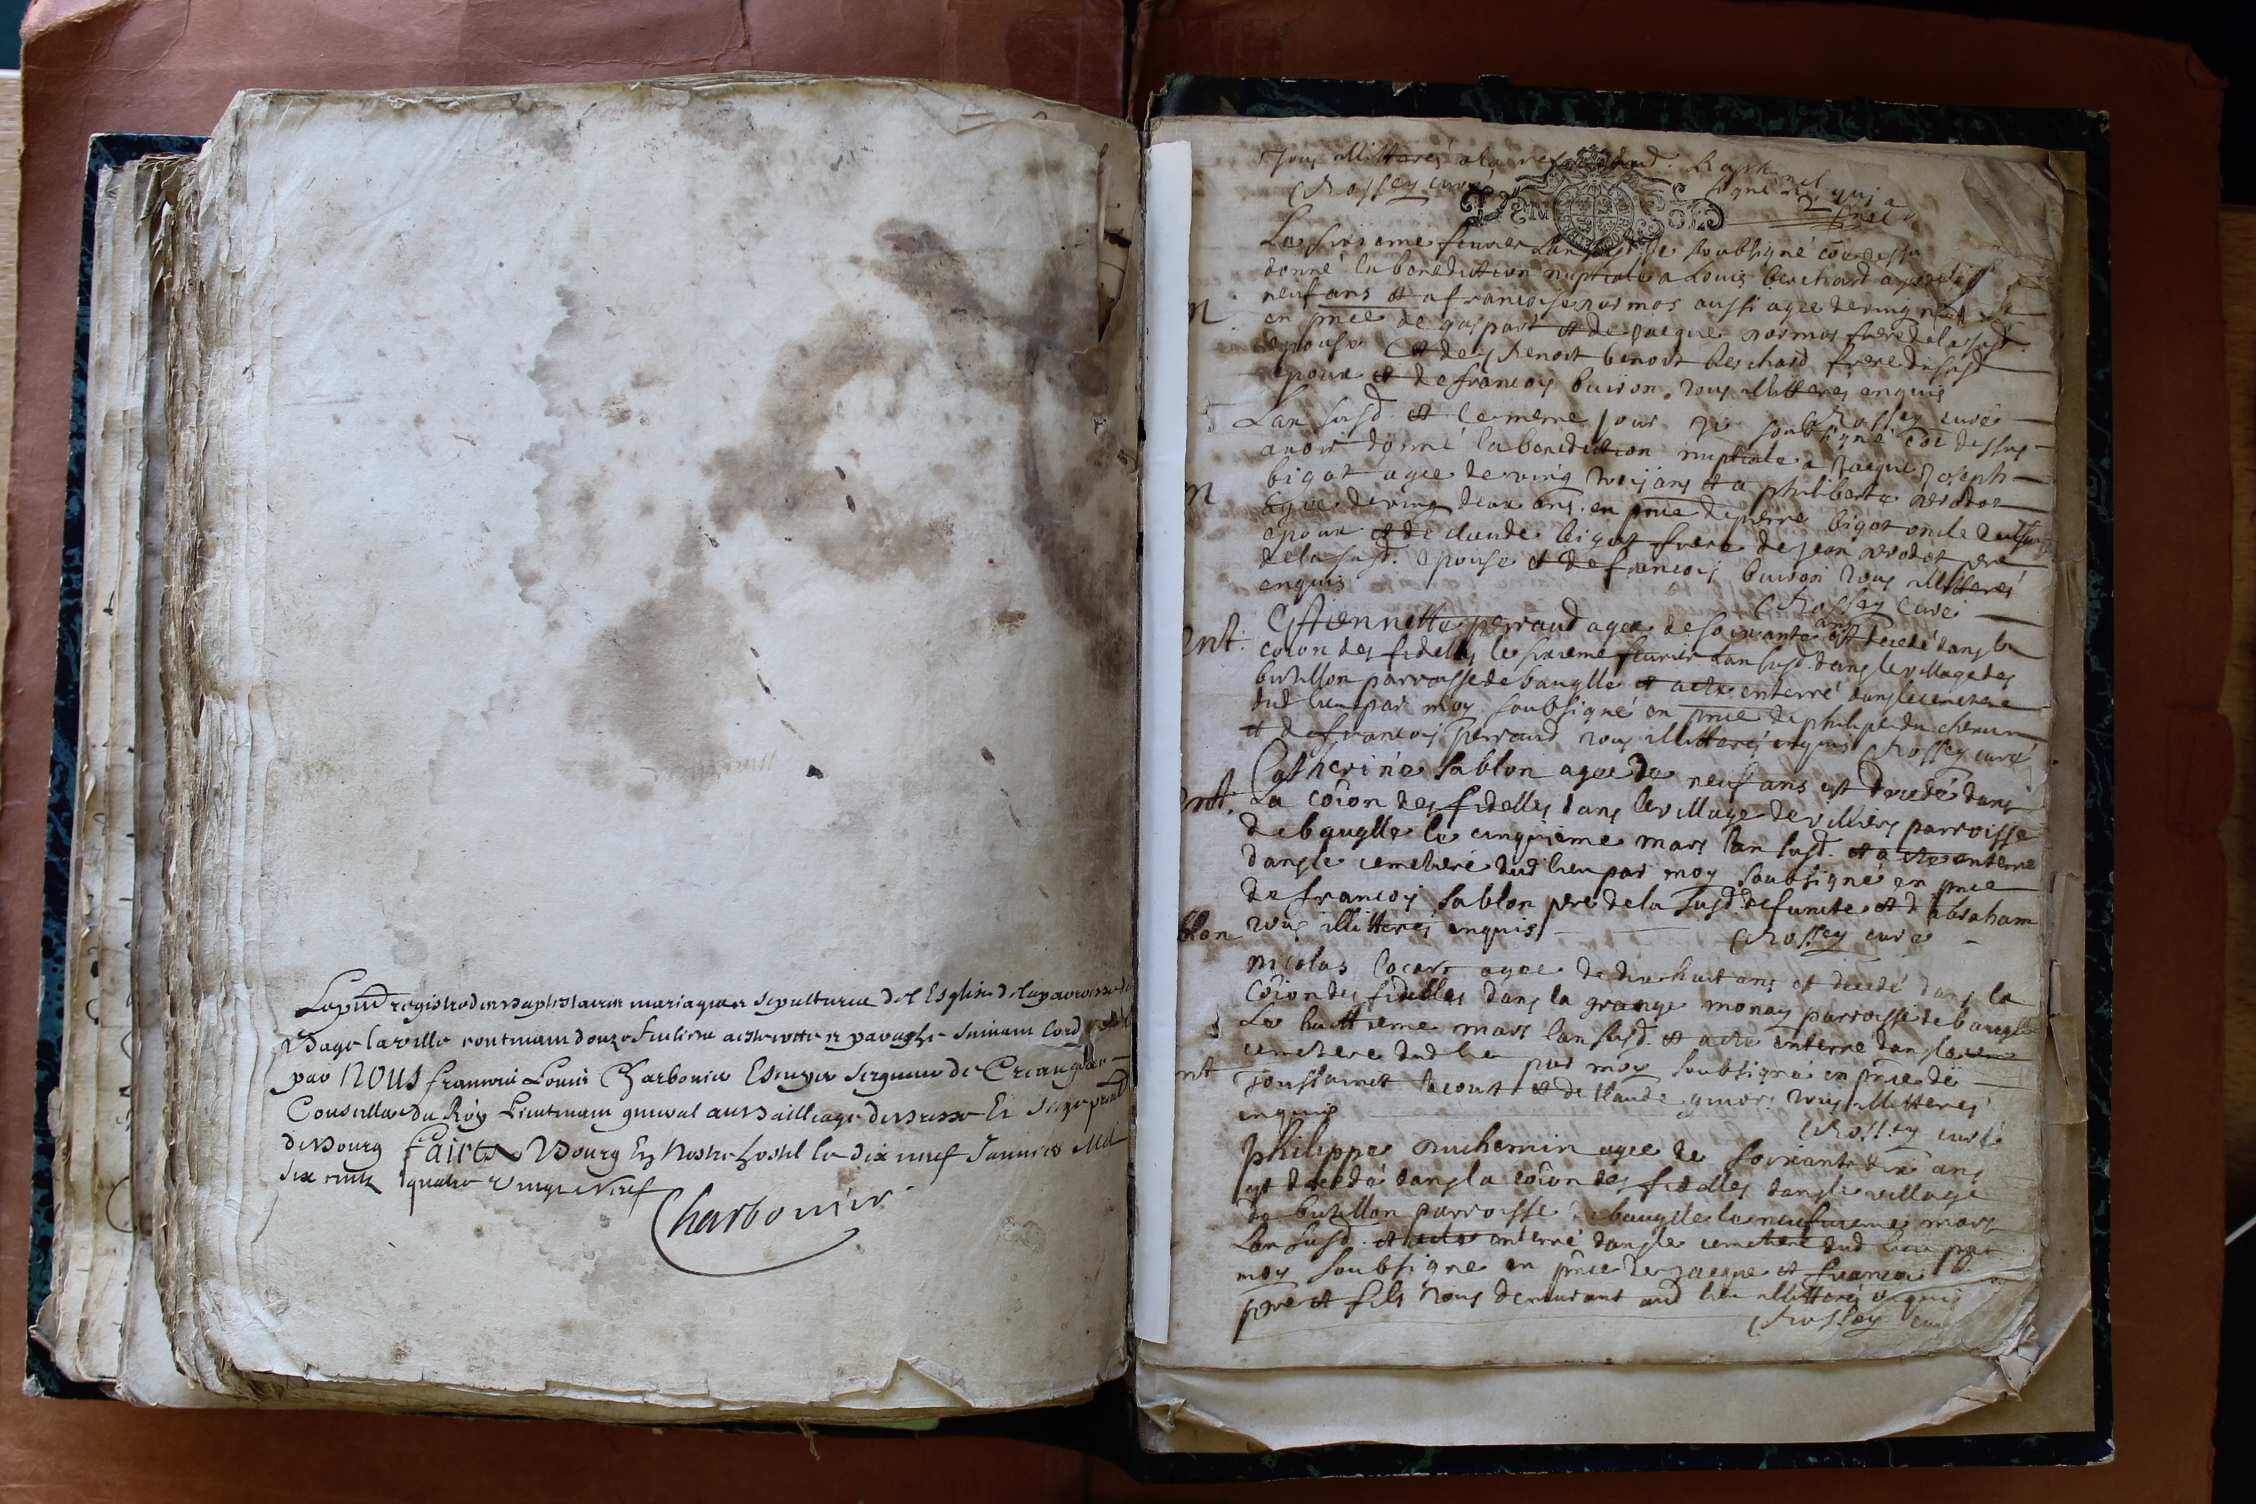 Le pnt registre des baptistaires mariages et sepultures de l'Esglise de la parroisse de
Bage la ville contenant douze feulliets a este cotte et paraphe suivant l'ord
par NOUS francois Louis Charbonier Escuyer seigneur de Crangeac
Conseiller du Roy Lieutenant general au Bailliage de Bresse Et siege presid
de Bourg fait a Bourg En Nostre hostel le dix neuf Janvier Mil
six cents quatre vingt Neuf
Charbonier
Tous illitteres
Rossey curé
Le sixieme fevrier Lan susd je soubsigné
donné la benediction nuptiale a Louis berchard agee de
neuf ans et a francoise normos aussi agee de ving
en pnce de gaspart et de Jacque normos frere de la susd
epouse et de benoit berchard frere du susd
epoux et de francois buiron. Tous illitteres enquis
Rossey curé
Lan susd. et le meme jour je soubsigné dessus
avoir donné la benediction nuptiale a Jacque Joseph
bigot agee de ving trois ans et a philiberte
agee de ving deux ans. en pnce de pierre bigot oncle
epoux et de claude bigot frere de jean pere
de la susd. epouse et de francois buiron Tous illitteres
enquis
Rossey Curé
Ent.
Estiennette perraud agee de soixante ans est decedé dans la
coion des fidelles le sixieme fevrier Lan susd. dans le village des
butillon parroisse de bauglle et a ete enterré dans le cemetiere
dud lieu par moy soubsigné en pnce de philipe du chemin
et de francois Perraud Tous illitteres enquis Rossey curé
Ent.
Catherine sablon agee de neuf ans est decedé dans
La coion des fidelles dans le village de villiers parroisse
de bauglle le cinquieme mars Lan susd. et a ete enterre
dans le cemetiere dud lieu par moy soubsigné en pnce
de francois sablon pere de la susd. defuncte et d abraham
blon Tous illitteres enquis
Rossey curé
Nicolas Cocart agee de dix huit ans est decedé dans la
Coion des fidelles dans la grange monay parroisse de bauglle
Le huittieme mars Lan susd. et a ete enterre dans le
cemetiere dud lieu par moy soubsigné en pnce de
Toussainct et de Claude Tous illitteres
enquis
Rossey curé
Philippe Duchemin agee de soixante dix ans
est decedé dans la coion des fidelles dans le village
de butillon parroisse bauglle le neufvieme mars
Lan susd. et a ete enterré dans le cemetiere dud lieu par
moy soubsigne en pnce de Jacque et francois
pere et fils Tous demeurant aud lieu illitteres enquis
Rossey